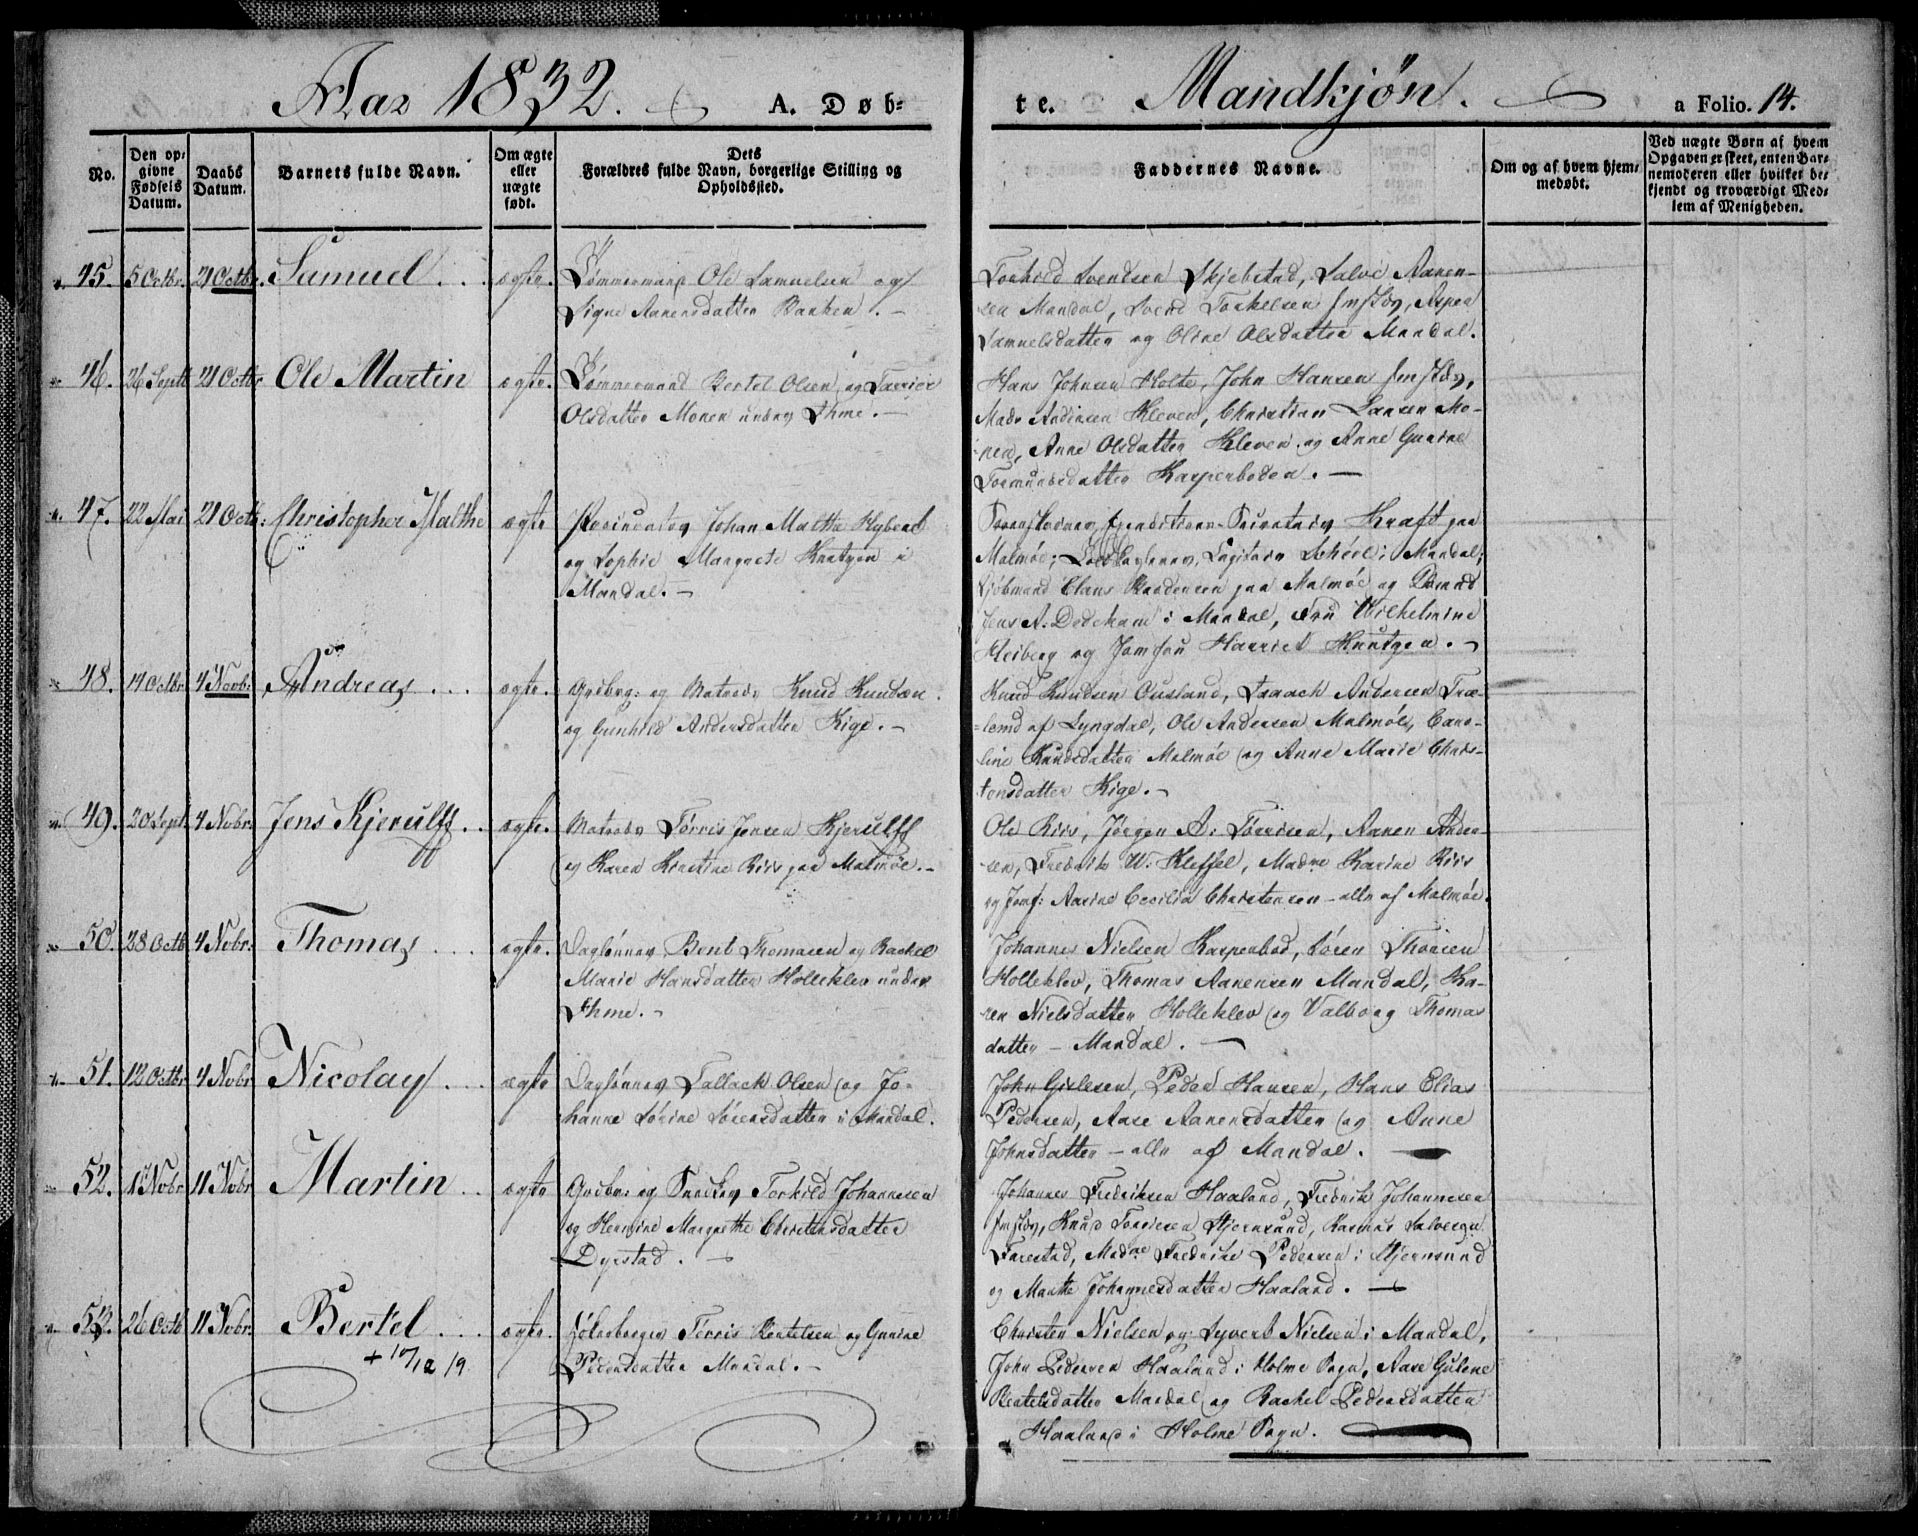 Aar 1832. A. Døb-
te. Mandkjøn. a Folio. 14.
No.
Den op-
givne
Fødsels
Datum.
Daabs
Datum.
Barnets fulde Navn.
Om ægte
eller
uægte
født.
Dets
Forældres fulde Navn, borgerlige Stilling og
Opholdssted.
Faddernes Navne.
Om og af hvem hjem-
medøbt.
Ved uægte Børn af hvem
Opgaven er skeet, enten Bar-
nemoderen eller hvilket be-
kjendt og troværdigt Med-
lem af Menigheden.
45. 5 Octbr. 21 Octbr. Samuel . . . ægte. Tømmermand Ole Samuelsen og
Signe Aanensdatter Banken . -
Torkild Svendsen Skjebstad, Salve Aanen-
sen Mandal, Svend Torkelsen
Samuelsdatter og Oline Olsdatter Mandal.
46. 26 Septb 21 Octbr Ole Martin ægte. Tømmermand Bertel Olsen og
Olsdatter Monen under Ihme. -
Hans Johnsen Holte, John Hansen
Mads Andersen Kleven, Christian Larsen Mo-
nen, Anne Olsdatter Kleven og Anne Gurine
datter Karpenboden. -
47. 22 Mai 21 Octb: Christopher Malthe ægte Johan Malthe Nyberd
og Sophie Margrete Knutzen i
Mandal. -
Kraft paa
Malmøe; i Mandal;
Kjøbmand Claus paa Malmøe og
Jens A. i Mandal, Fru Wilhelmine
Heiberg og Jomfru Harriet Knutzen. -
48. 14 Octbr 4 Novb: Andreas . . . ægte. Grdbrg: og Matrods Knud Knudsen
og Gunhild Andersdatter Kige. -
Knud Knudsen Ousland, Isaach Andersen Træ-
lemd af Lyngdal, Ole Andersen Malmøe, Caro-
line Knudsdatter Malmøe og Anne Marie Chris-
tensdatter Kige. -
49. 20 Sept 4 Nobr. Jens Kjerulff . . ægte. Matrods Tørris Jensen Kjerulff
og Karen Kirstine Riis paa Malmøe. -
Ole Riis, Jørgen A. Torrisen, Aanen Ander-
sen, Fredrik W. Kleffel, Madme Karine Riis
og Jomf: Aasine Cecilia Christensen - alle af Malmøe.
50. 28 Octb 4 Nobr. Thomas . . . ægte. Daglønner Bent Thomasen og Rachel
Marie Hansdatter Holleklev under
Ihme. -
Johannes Nielsen Karpenbod, Sören Thorsen
Holleklev, Thomas Aanensen Mandal, Ka-
ren Nielsdatter Holleklev og Valborg Thomas
datter - Mandal. -
51. 12 Octbr 4 Nobr Nicolay . . . ægte Daglønner Tallack Olsen og Jo-
hanne Sörine Sörensdatter i Mandal.
John Gislesen, Peder Hansen, Hans Elias
Pedersen, Aase Aanensdatter og Anne
Johnsdatter - alle af Mandal. -
52. 1 Nobr 11 Nobr Martin . . ægte Grdbr: og Snedker Torkild Johannesen
og Hermine Margrethe Christensdatter
Dyrstad. -
Johannes Fredriksen Haaland, Fredrik Johannesen
Knud Torrisen Stjernsund, Rasmus Salvesen
Farestad, Madme Fredrike Pedersen i Stjernsund
og Marthe Johannesdatter Haaland. -
53. 26 Octb 11 Nobr. Bertel . . . ægte. Torris Bertelsen og Gurine
Pedersdatter Mandal. -
+ 17/12 19.
Christen Nielsen og Syvert Nielsen i Mandal,
John Pedersen Haaland i Holme Sogn, Aase Gulene
Bertelsdatter Mandal og Rachel Pedersdatter
Haaland i Holme Sogn.